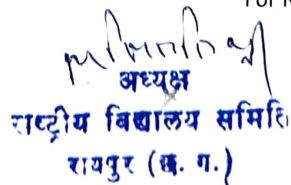 अध्यक्ष
राष्ट्रीय विद्यालय समिति
रायपुर (छ. ग.)